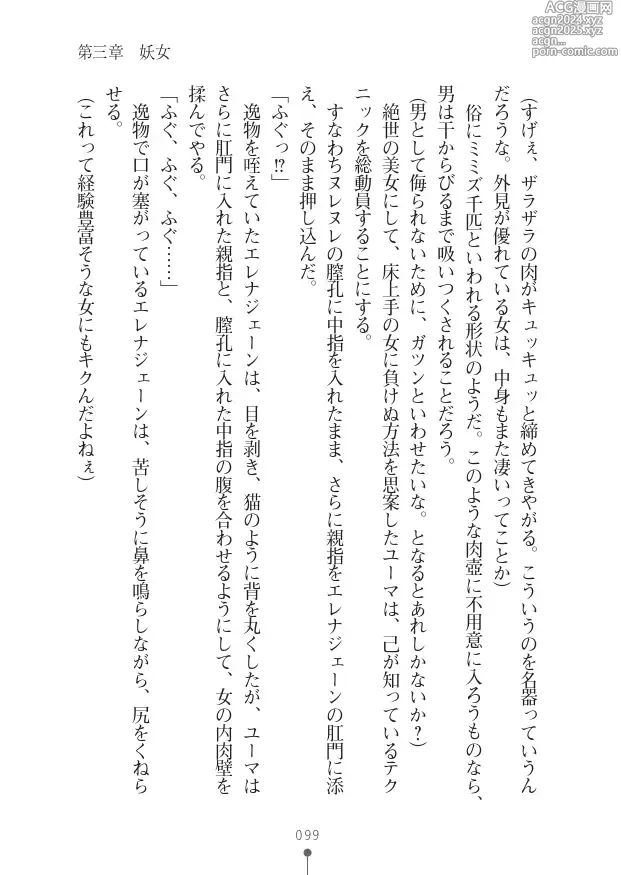 ACG漫画网
acgn2024.xyz
acgn2025.xyz
acgn2026.xyz
第三章　妖女
(すげぇ、ザラザラの肉がキュッキュッと締めてきやがる。こういうのを名器っていうん
だろうな。外見が優れている女は、中身もまた凄いってことか)
俗にミミズ千匹といわれる形状のようだ。このような肉壺に不用意に入ろうものなら、
男は干からびるまで吸いつくされることだろう。
(男として侮られないために、ガツンといわせたいな。となるとあれしかないか?)
絶世の美女にして、床上手の女に負けぬ方法を思案したユーマは、己が知っているテク
ニックを総動員することにする。
すなわちヌレヌレの膣孔に中指を入れたまま、さらに親指をエレナジェーンの肛門に添
え、そのまま押し込んだ。
「ふぐっ!?」
逸物を咥えていたエレナジェーンは、目を剥き、猫のように背を丸くしたが、ユーマは
さらに肛門に入れた親指と、膣孔に入れた中指の腹を合わせるようにして、女の内肉壁を
揉んでやる。
「ふぐ、ふぐ、ふぐ……」
逸物で口が塞がっているエレナジェーンは、苦しそうに鼻を鳴らしながら、尻をくねら
せる。
(これって経験豊富そうな女にもキクんだよねぇ)
099